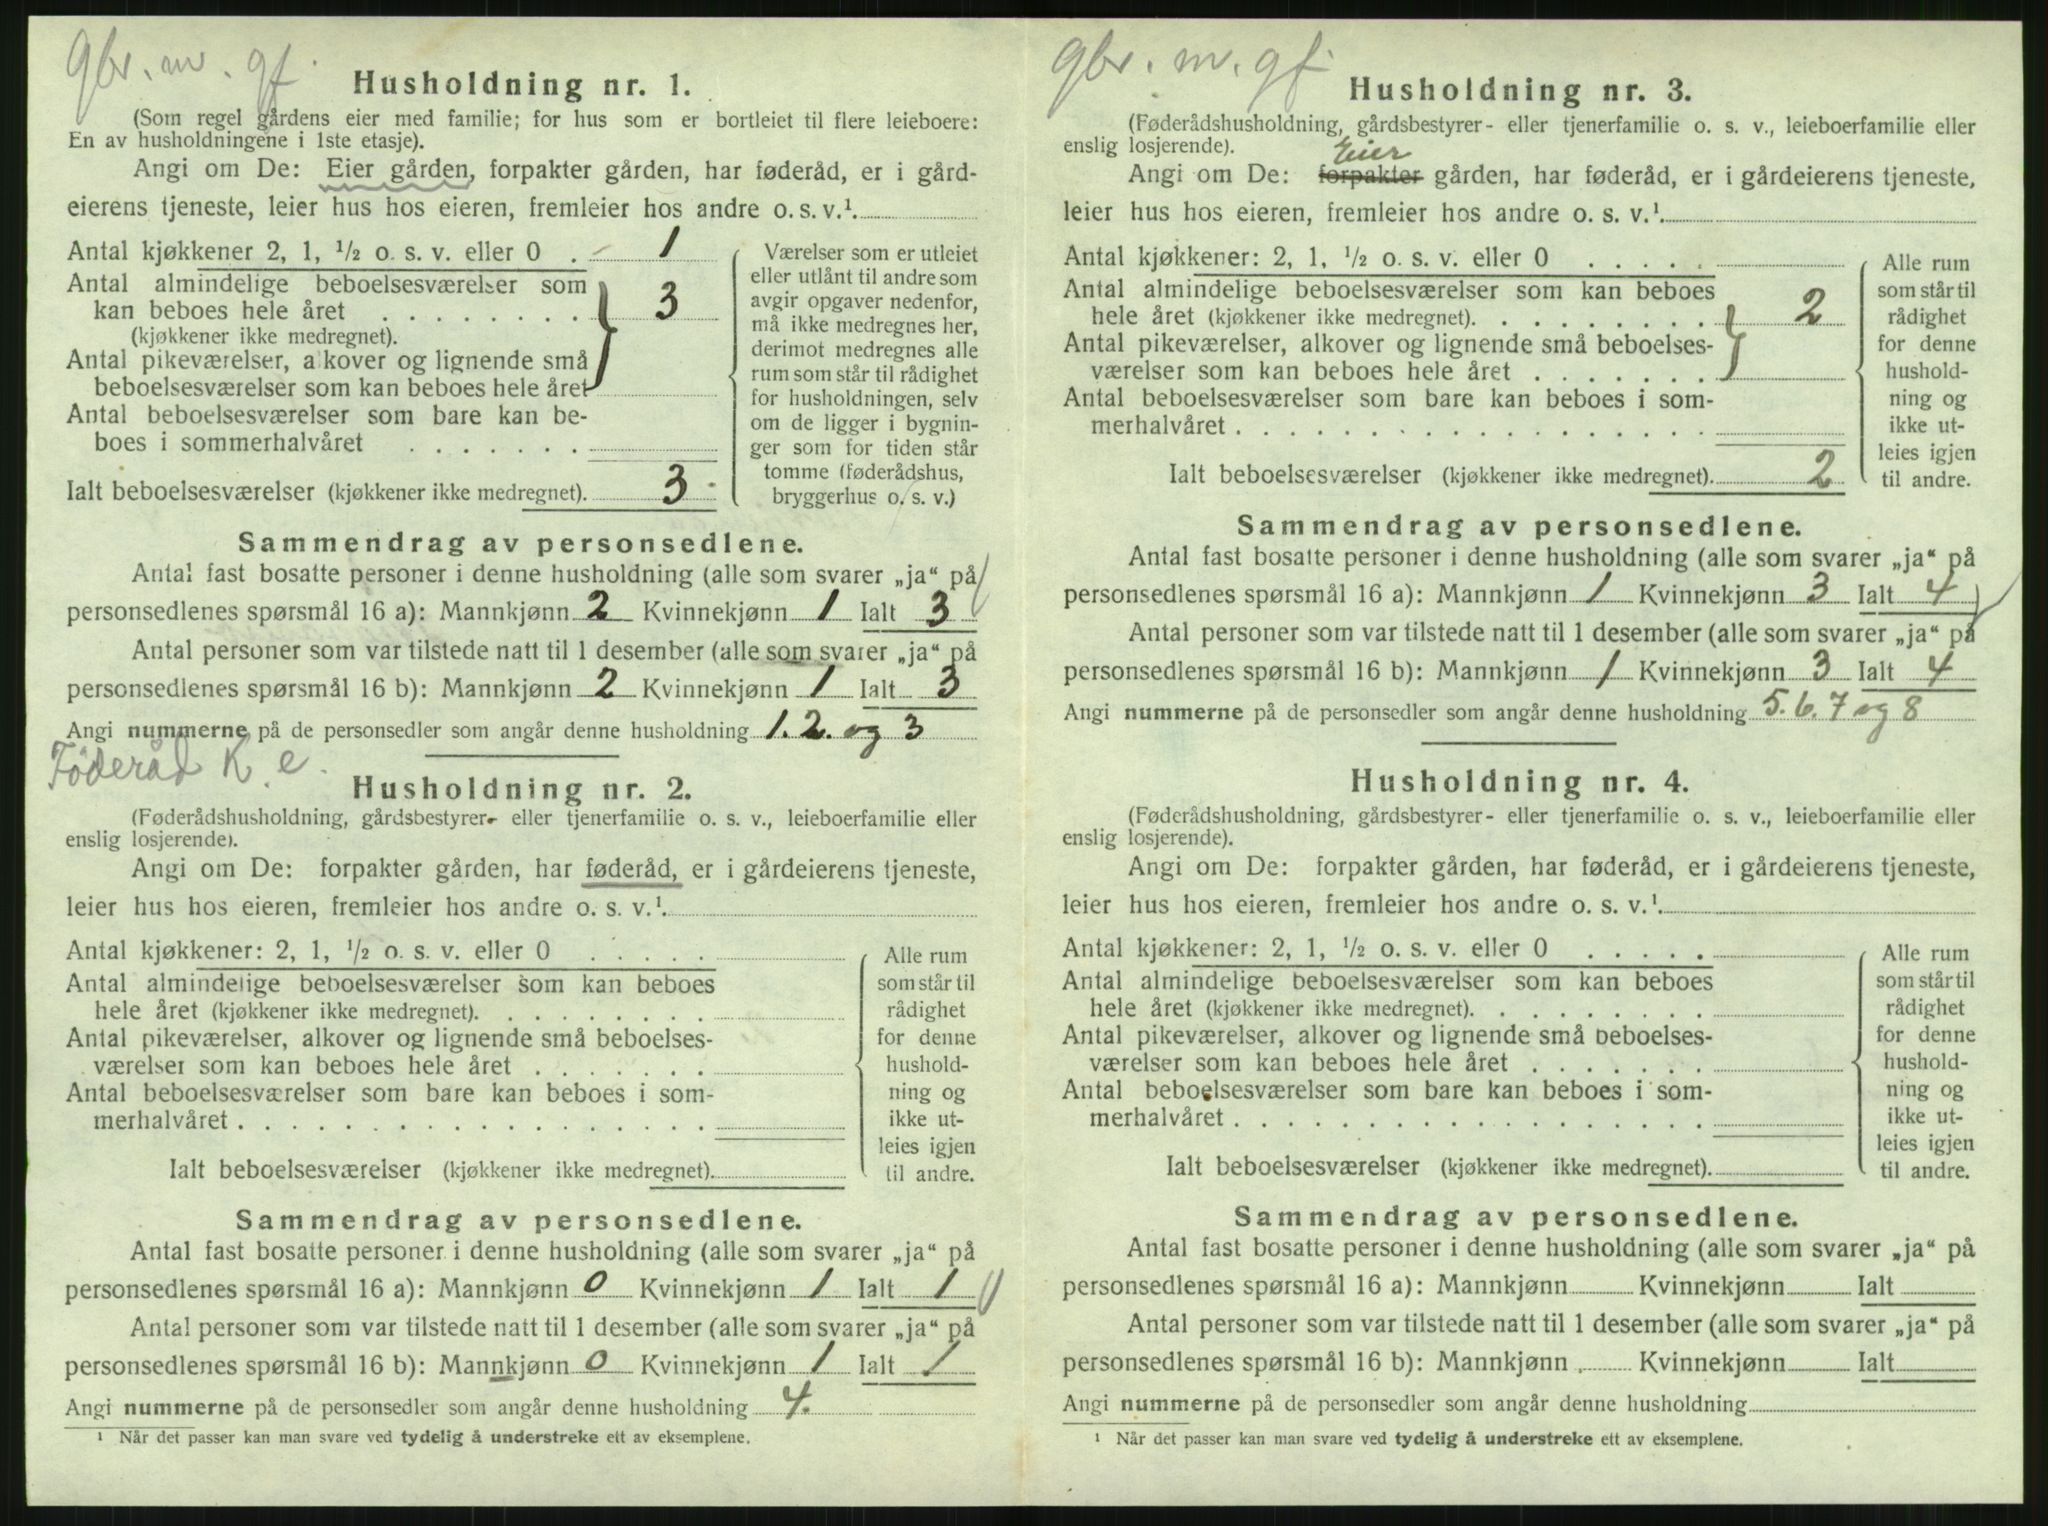 gbr. m. gf.
Husholdning nr. 1.
(Som regel gårdens eier med familie; for hus som er bortleiet til flere leieboere:
En av husholdningene i 1ste etasje).
Angi om De: Eier gården, forpakter gården, har føderåd, er i gård-
eierens tjeneste, leier hus hos eieren, fremleier hos andre o. s. v.¹.
Antal kjøkkener 2, 1, ½ o. s. v. eller 0 . 1
Antal almindelige beboelsesværelser som
kan beboes hele året . . . . . . . . 3
(kjøkkener ikke medregnet).
Antal pikeværelser, alkover og lignende små
beboelsesværelser som kan beboes hele året
Antal beboelsesværelser som bare kan be-
boes i sommerhalvåret . . . . . . .
Ialt beboelsesværelser (kjøkkener ikke medregnet). 3
Værelser som er utleiet
eller utlånt til andre som
avgir opgaver nedenfor,
må ikke medregnes her,
derimot medregnes alle
rum som står til rådighet
for husholdningen, selv
om de ligger i bygnin-
ger som for tiden står
tomme (føderådshus,
bryggerhus o. s. v.)
Sammendrag av personsedlene.
Antal fast bosatte personer i denne husholdning (alle som svarer „ja“ på
personsedlenes spørsmål 16 a): Mannkjønn 2 Kvinnekjønn 1 Ialt 3
Antal personer som var tilstede natt til 1 desember (alle som svarer „ja“ på
personsedlenes spørsmål 16 b): Mannkjønn 2 Kvinnekjønn 1 Ialt 3
Angi nummerne på de personsedler som angår denne husholdning 1. 2. og 3
Føderåd K. e.
Husholdning nr. 2.
(Føderådshusholdning, gårdsbestyrer- eller tjenerfamilie o. s. v., leieboerfamilie eller
enslig losjerende).
Angi om De: forpakter gården, har føderåd, er i gårdeierens tjeneste,
leier hus hos eieren, fremleier hos andre o. s. v.¹.
Antal kjøkkener: 2, 1, ½ o. s. v. eller 0 . . . . .
Antal almindelige beboelsesværelser som kan beboes
hele året (kjøkkener ikke medregnet). . . . . . . . .
Antal pikeværelser, alkover og lignende små beboelses-
værelser som kan beboes hele året . . . . . . .
Antal beboelsesværelser som bare kan beboes i som-
merhalvåret . . . . . . . . . . . . . . . . . .
Ialt beboelsesværelser (kjøkkener ikke medregnet).
Alle rum
som står til
rådighet
for denne
hushold-
ning og
ikke ut-
leies igjen
til andre.
Sammendrag av personsedlene.
Antal fast bosatte personer i denne husholdning (alle som svarer „ja“ på
personsedlenes spørsmål 16 a): Mannkjønn 0 Kvinnekjønn 1 Ialt 1
Antal personer som var tilstede natt til 1 desember (alle som svarer „ja“ på
personsedlenes spørsmål 16 b): Mannkjønn 0 Kvinnekjønn 1 Ialt 1
Angi nummerne på de personsedler som angår denne husholdning 4.
¹ Når det passer kan man svare ved tydelig å understreke ett av eksemplene.
gbr. m. gf.
Husholdning nr. 3.
(Føderådshusholdning, gårdsbestyrer- eller tjenerfamilie o. s. v., leieboerfamilie eller
enslig losjerende).
Eier
Angi om De: forpakter gården, har føderåd, er i gårdeierens tjeneste,
leier hus hos eieren, fremleier hos andre o. s. v.¹.
Antal kjøkkener: 2, 1, ½ o. s. v. eller 0 . . . . .
Antal almindelige beboelsesværelser som kan beboes
hele året (kjøkkener ikke medregnet). . . . . . . . . 2
Antal pikeværelser, alkover og lignende små beboelses-
værelser som kan beboes hele året . . . . . . .
Antal beboelsesværelser som bare kan beboes i som-
merhalvåret . . . . . . . . . . . . . . . . . .
Ialt beboelsesværelser (kjøkkener ikke medregnet). 2
Alle rum
som står til
rådighet
for denne
hushold-
ning og
ikke ut-
leies igjen
til andre.
Sammendrag av personsedlene.
Antal fast bosatte personer i denne husholdning (alle som svarer „ja“ på
personsedlenes spørsmål 16 a): Mannkjønn 1 Kvinnekjønn 3 Ialt 4
Antal personer som var tilstede natt til 1 desember (alle som svarer „ja“ på
personsedlenes spørsmål 16 b): Mannkjønn 1 Kvinnekjønn 3 Ialt 4
Angi nummerne på de personsedler som angår denne husholdning 5. 6. 7 og 8
Husholdning nr. 4.
(Føderådshusholdning, gårdsbestyrer- eller tjenerfamilie o. s. v., leieboerfamilie eller
enslig losjerende).
Angi om De: forpakter gården, har føderåd, er i gårdeierens tjeneste,
leier hus hos eieren, fremleier hos andre o. s. v.¹.
Antal kjøkkener: 2, 1, ½ o. s. v. eller 0 . . . . .
Antal almindelige beboelsesværelser som kan beboes
hele året (kjøkkener ikke medregnet). . . . . . . . .
Antal pikeværelser, alkover og lignende små beboelses-
værelser som kan beboes hele året . . . . . . .
Antal beboelsesværelser som bare kan beboes i som-
merhalvåret . . . . . . . . . . . . . . . . . .
Ialt beboelsesværelser (kjøkkener ikke medregnet).
Alle rum
som står til
rådighet
for denne
hushold-
ning og
ikke ut-
leies igjen
til andre.
Sammendrag av personsedlene.
Antal fast bosatte personer i denne husholdning (alle som svarer „ja“ på
personsedlenes spørsmål 16 a): Mannkjønn Kvinnekjønn Ialt
Antal personer som var tilstede natt til 1 desember (alle som svarer „ja“ på
personsedlenes spørsmål 16 b): Mannkjønn Kvinnekjønn Ialt
Angi nummerne på de personsedler som angår denne husholdning
¹ Når det passer kan man svare ved tydelig å understreke ett av eksemplene.